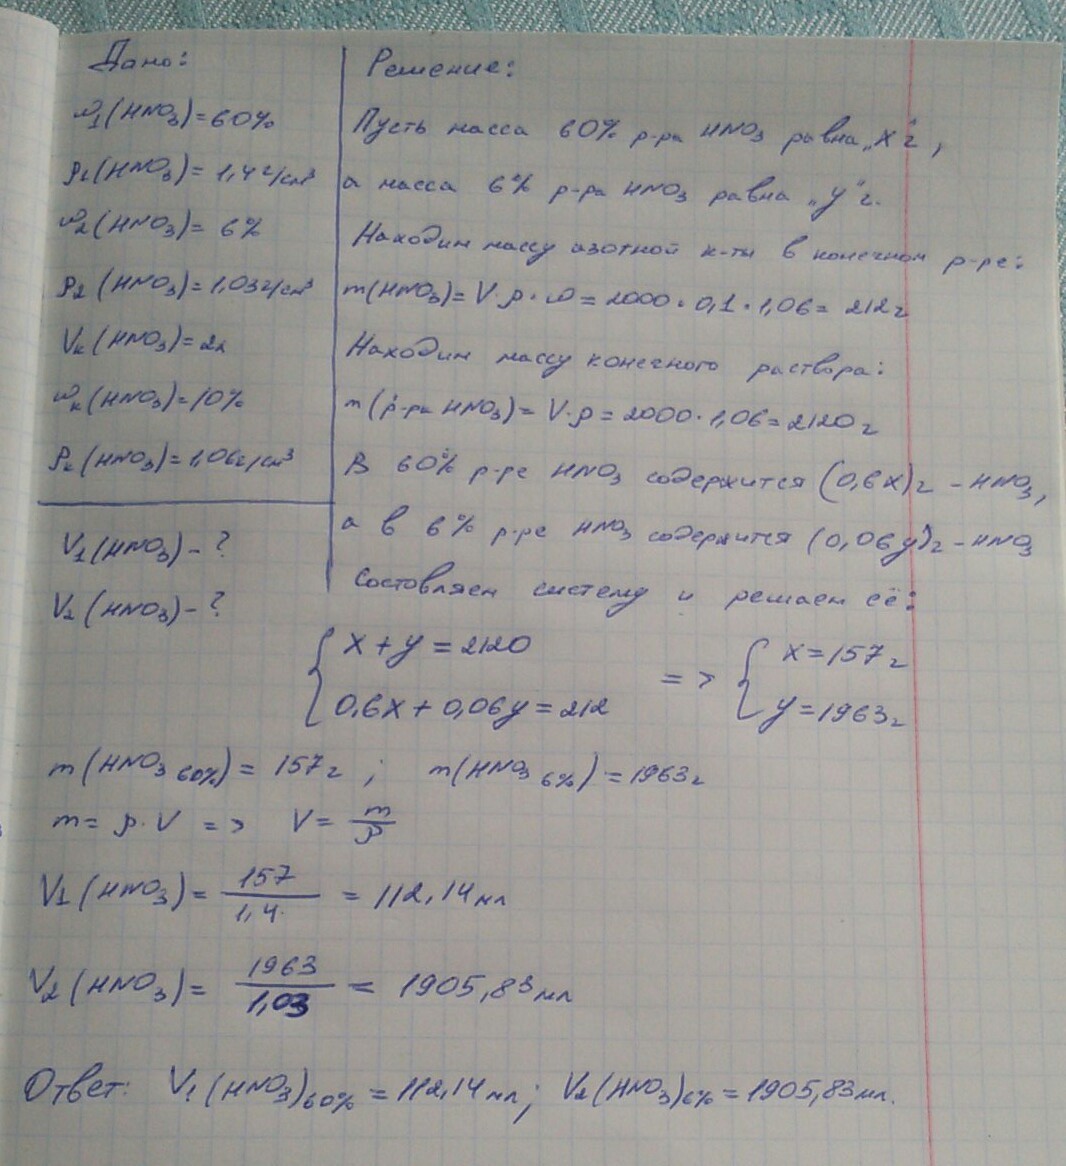 Дано:
ω1(HNO3)=60%
ρ1(HNO3)=1,4г/см³
ω2(HNO3)=6%
ρ2(HNO3)=1,03г/см³
Vк(HNO3)=2л
ωк(HNO3)=10%
ρк(HNO3)=1,06г/см³
V1(HNO3)-?
V2(HNO3)-?
Решение:
Пусть масса 60% р-ра HNO3 равна „x“г,
а масса 6% р-ра HNO3 равна „y“г.
Находим массу азотной к-ты в конечном р-ре:
m(HNO3)=V·ρ·ω=2000·0,1·1,06=212г
Находим массу конечного раствора:
m(р-ра HNO3)=V·ρ=2000·1,06=2120г
В 60% р-ре HNO3 содержится (0,6x)г-HNO3,
а в 6% р-ре HNO3 содержится (0,06y)г-HNO3
Составляем систему и решаем её:
{ x+y=2120 => { x=157г
0,6x+0,06y=212 y=1963г
m(HNO3 60%)=157г; m(HNO3 6%)=1963г
m=ρ·V => V=m/ρ
V1(HNO3)=157/1,4=112,14мл
V2(HNO3)=1963/1,03=1905,83мл
Ответ: V1(HNO3)60%=112,14мл; V2(HNO3)6%=1905,83мл.